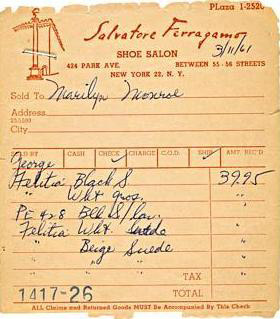 PLaza 1-2520
Salvatore Ferragamo
SHOE SALON
3/11/61
424 PARK AVE. BETWEEN 55 - 56 STREETS
NEW YORK 22, N. Y.
Sold To Marilyn Monroe
Address
City
SOLD BY CASH CHECK CHARGE C.O.D. SHIP AMT. REC'D
George ✓ ✓
Felitia Black S 39.95
" Wht " "
PE 428 Blk S/ "
Felitia Wht Suede "
" Beige Suede "
TAX "
1417-26 TOTAL
ALL Claims and Returned Goods MUST Be Accompanied By This Check